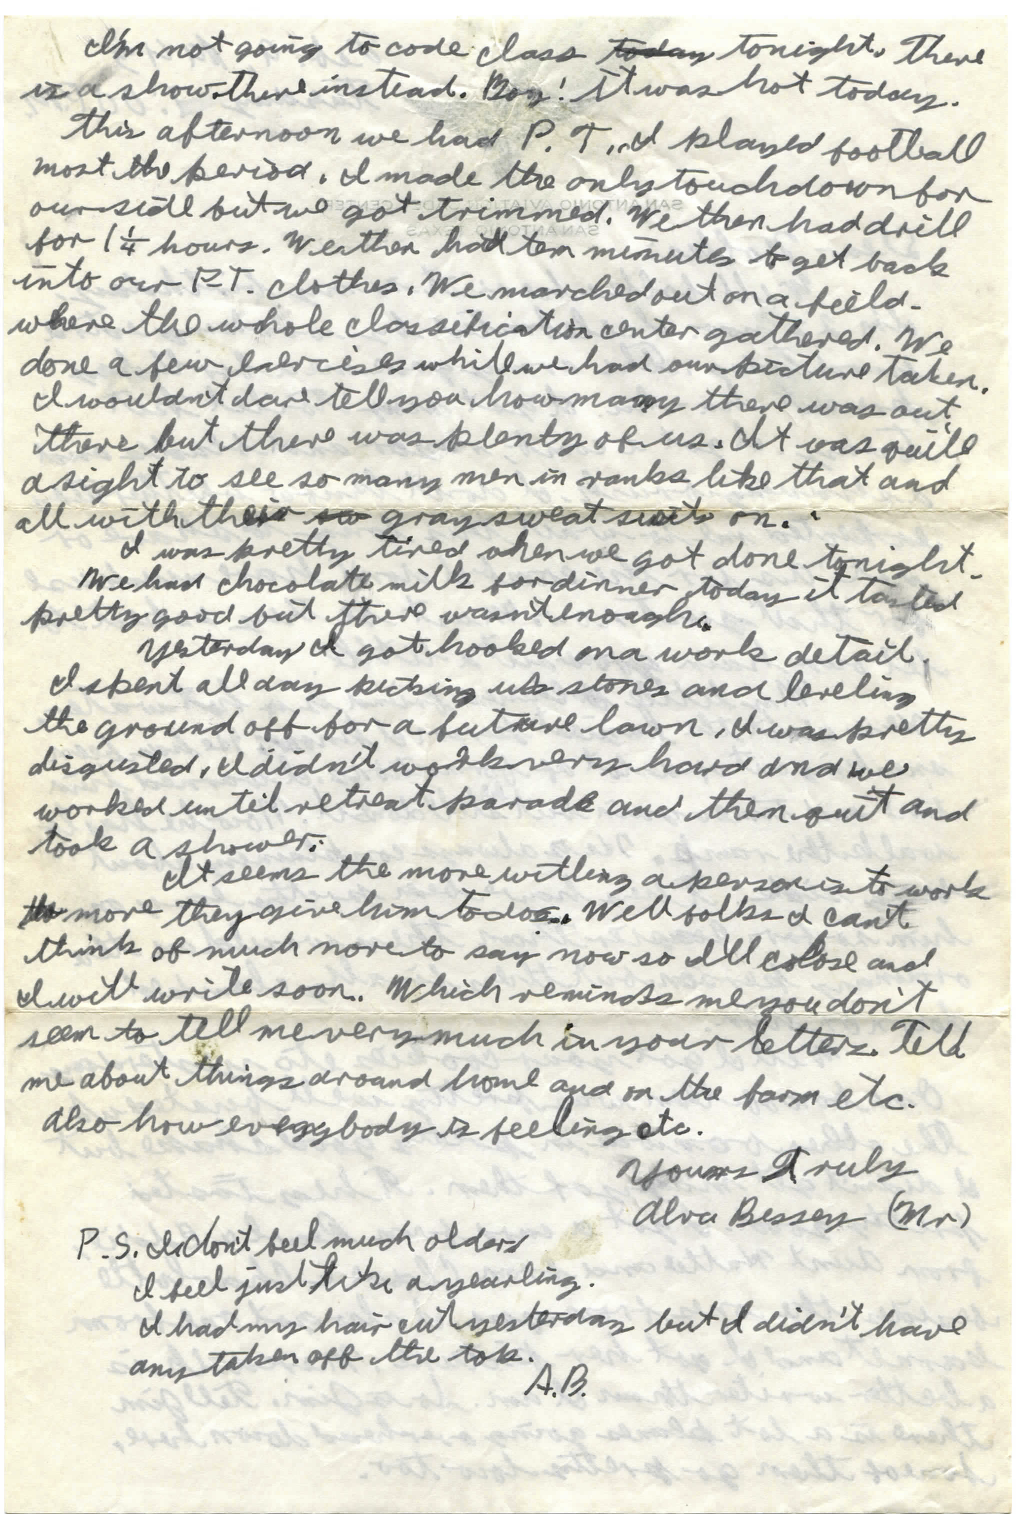 I'm not going to code class today tonight. There
is a show there instead. Boy! it was hot today.
This afternoon we had P. T., I played football
most the period. I made the only touchdown for
our side but we got trimmed. We then had drill
for 1¼ hours. We then had ten minutes to get back
into our P.T. clothes. We marched out on a field
where the whole classification center gathered. We
done a few exercises while we had our picture taken.
I wouldn't dare tell you how many there was out
there but there was plenty of us. It was quite
a sight to see so many men in ranks like that and
all with their so gray sweat suits on.
I was pretty tired when we got done tonight.
We had chocolate milk for dinner today it tasted
pretty good but there wasn't enough.
Yesterday I got hooked on a work detail.
I spent all day picking up stones and leveling
the ground off for a future lawn, I was pretty
disgusted, I didn't work very hard and we
worked until retreat parade and then quit and
took a shower.
It seems the more willing a person is to work
the more they give him to do. Well folks I can't
think of much more to say now so I'll close and
I will write soon. Which reminds me you don't
seem to tell me very much in your letters. Tell
me about things around home and on the farm etc.
Also how everybody is feeling etc.
Yours Truly
Alva Bessey (Mr)
P. S. I don't feel much older
I feel just like a yearling.
I had my hair cut yesterday but I didn't have
any taken off the top.
A.B.
SAN ANTONIO AVIATION CADET CENTER
SAN ANTONIO, TEXAS